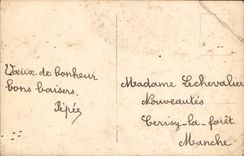 Vœux de bonheur
bons baisers.
Pépée
Madame Lechevalier
Nouveautés
Cerisy-la-forêt
Manche